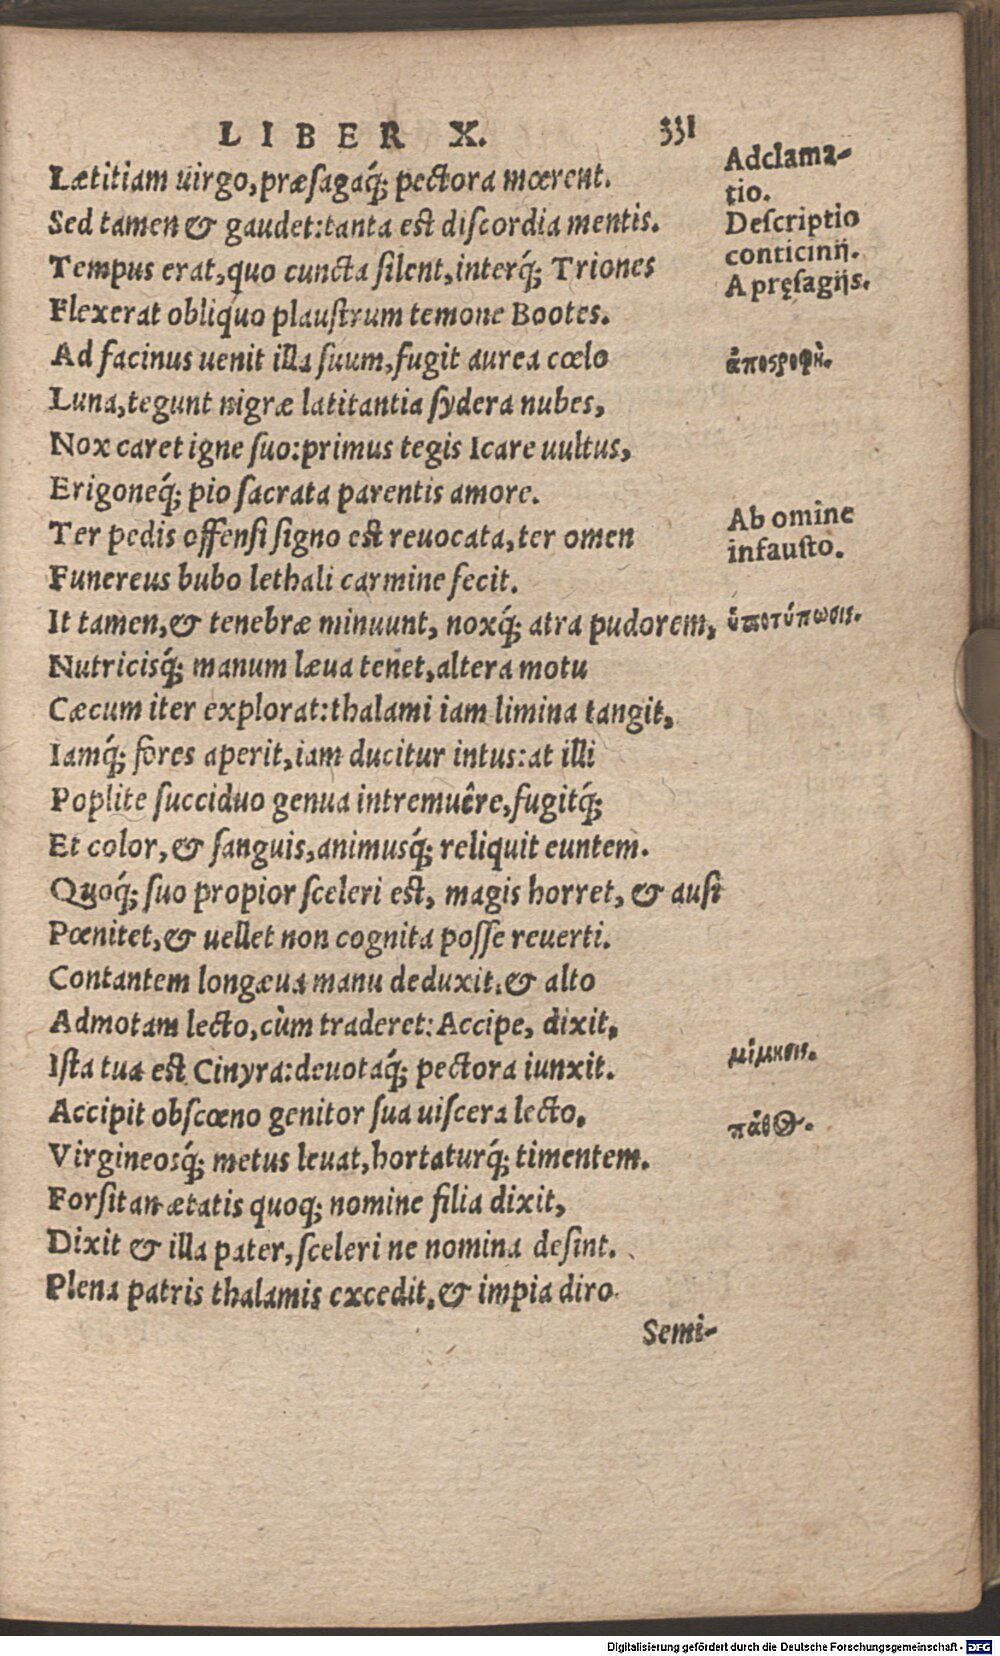 LIBER X. 331
Lætitiam uirgo, præsagaq́; pectora mœrent.
Sed tamen & gaudet: tanta est discordia mentis.
Tempus erat, quo cuncta silent, interq́; Triones
Flexerat obliquo plaustrum temone Bootes.
Ad facinus uenit illa suum, fugit aurea cœlo
Luna, tegunt nigræ latitantia sydera nubes,
Nox caret igne suo: primus tegis Icare uultus,
Erigoneq́; pio sacrata parentis amore.
Ter pedis offensi signo est reuocata, ter omen
Funereus bubo lethali carmine fecit.
It tamen, & tenebræ minuunt, noxq́; atra pudorem,
Nutricisq́; manum læua tenet, altera motu
Cæcum iter explorat: thalami iam limina tangit,
Iamq́; fores aperit, iam ducitur intus: at illi
Poplite succiduo genua intremuêre, fugitq́;
Et color, & sanguis, animusq́; reliquit euntem.
Quoq́; suo propior sceleri est, magis horret, & ausi
Pœnitet, & uellet non cognita posse reuerti.
Contantem longæua manu deduxit, & alto
Admotam lecto, cùm traderet: Accipe, dixit,
Ista tua est Cinyra: deuotaq́; pectora iunxit.
Accipit obscœno genitor sua uiscera lecto,
Virgineosq́; metus leuat, hortaturq́; timentem.
Forsitan ætatis quoq; nomine filia dixit,
Dixit & illa pater, sceleri ne nomina desint.
Plena patris thalamis excedit, & impia diro
Semi-
Adclama-
tio.
Descriptio
conticinij.
A pręsagijs.
ἀποςροφὴ.
Ab omine
infausto.
ὑποτύπωσις.
μίμησις.
πάθος.
Digitalisierung gefördert durch die Deutsche Forschungsgemeinschaft - DFG